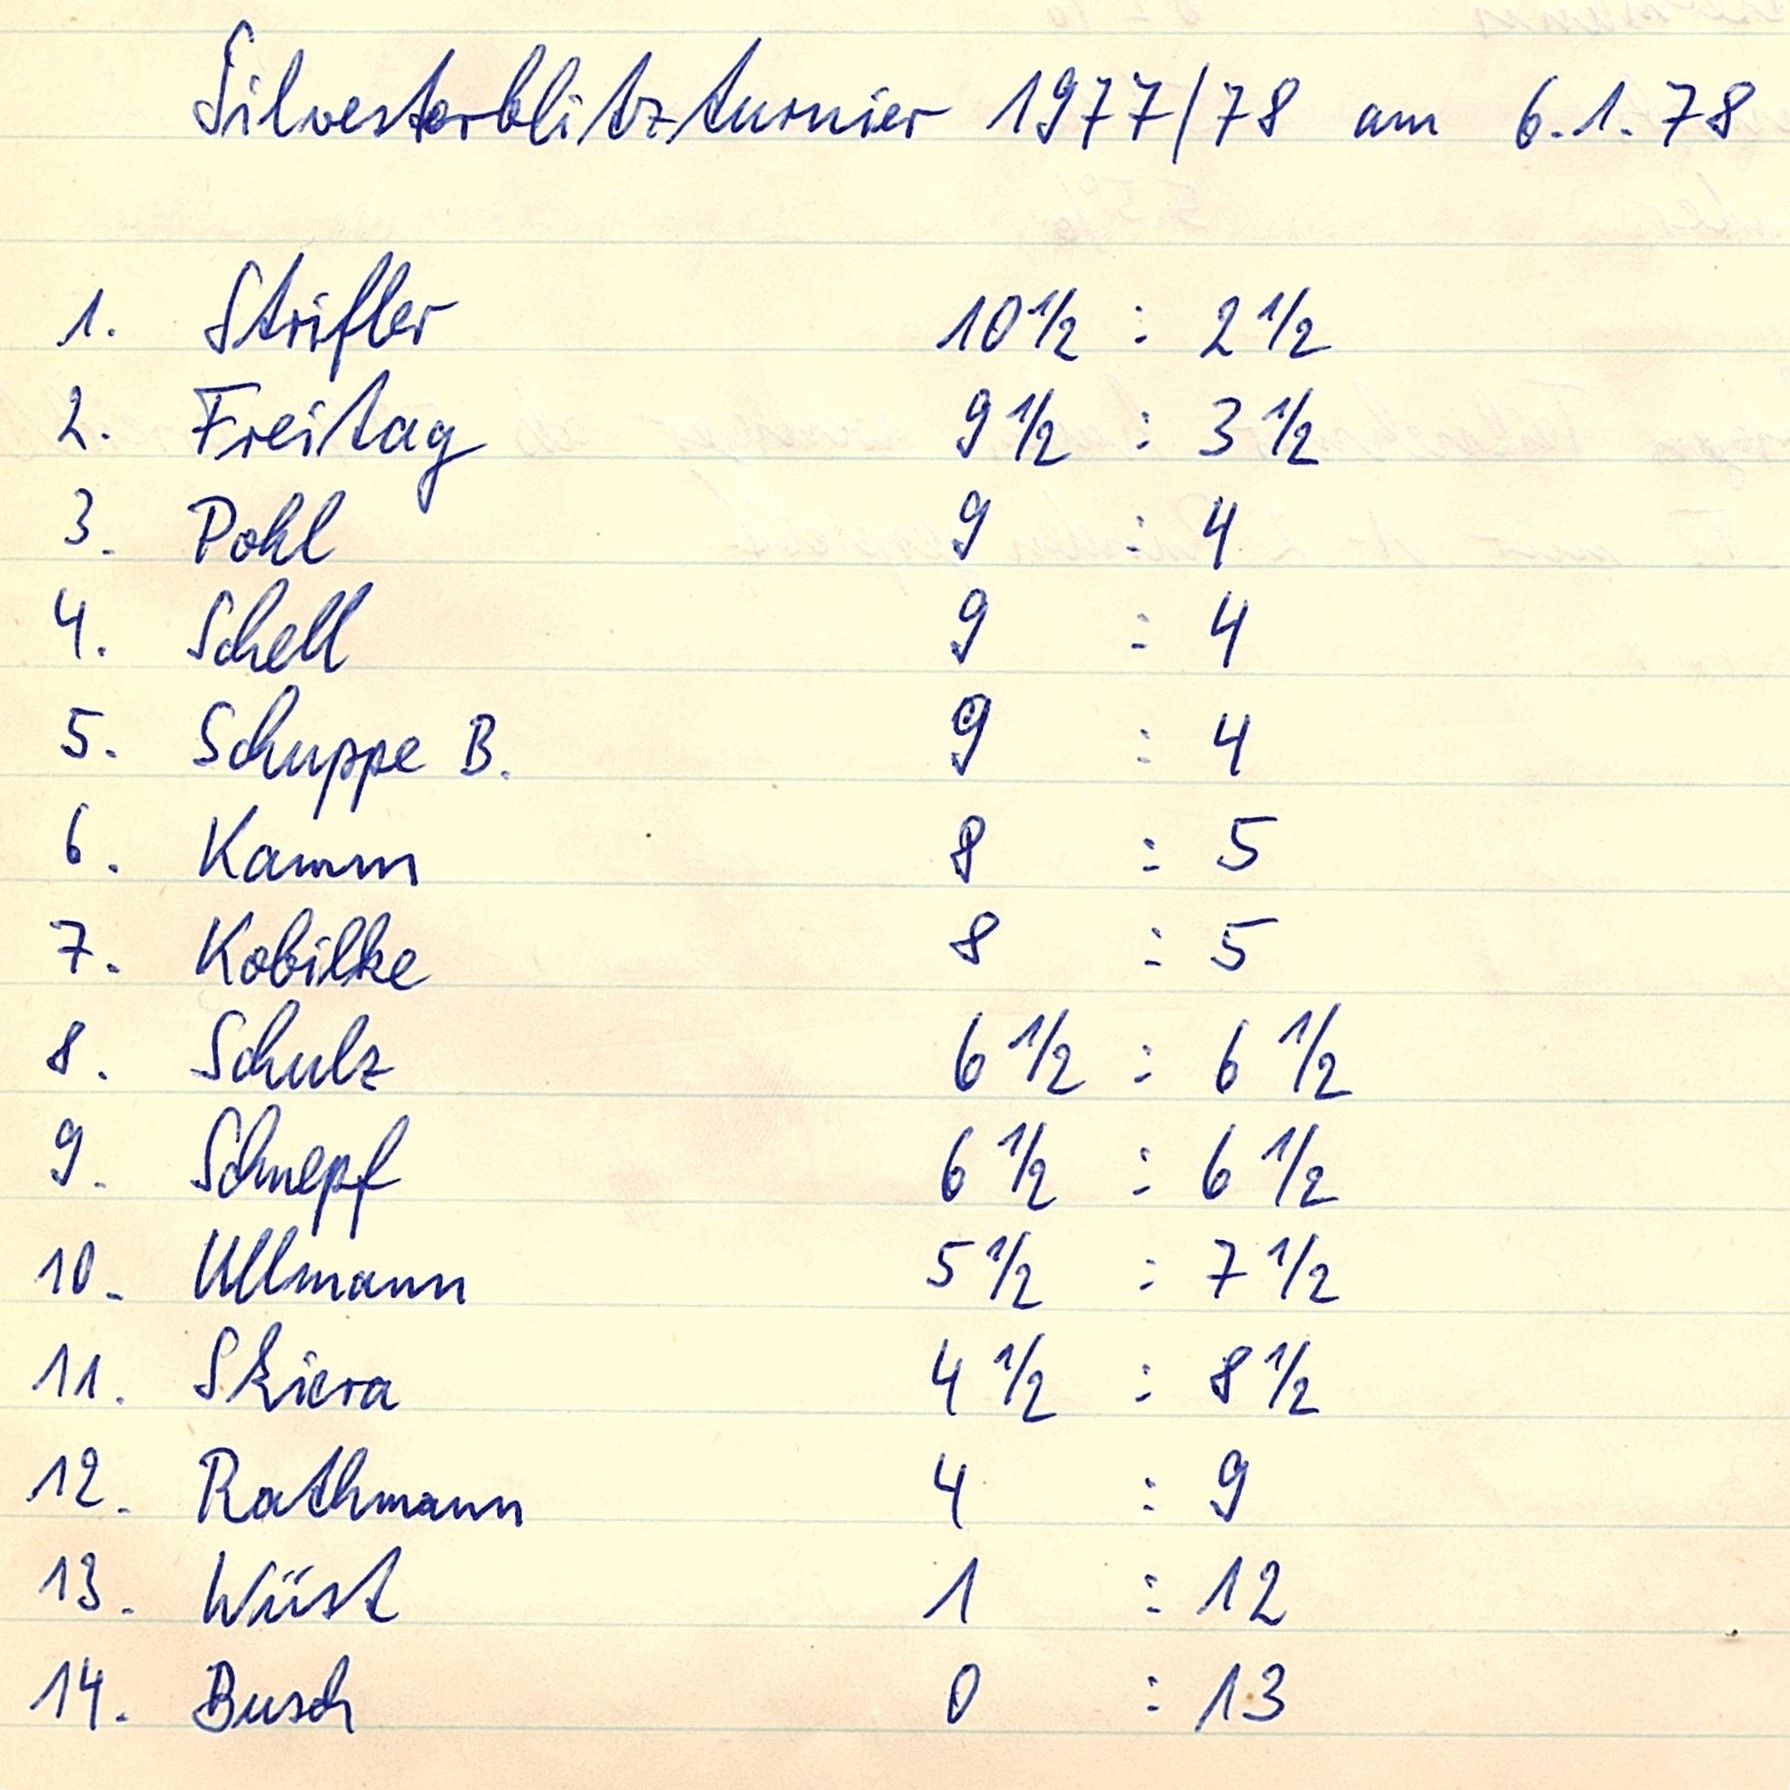 Silvesterblitzturnier 1977/78 am 6.1.78
1. Strifler 10 1/2 : 2 1/2
2. Freitag 9 1/2 : 3 1/2
3. Pohl 9 : 4
4. Schell 9 : 4
5. Schuppe B. 9 : 4
6. Kamm 8 : 5
7. Kobilke 8 : 5
8. Schulz 6 1/2 : 6 1/2
9. Schnepf 6 1/2 : 6 1/2
10. Ullmann 5 1/2 : 7 1/2
11. Skiera 4 1/2 : 8 1/2
12. Rathmann 4 : 9
13. Wüst 1 : 12
14. Busch 0 : 13